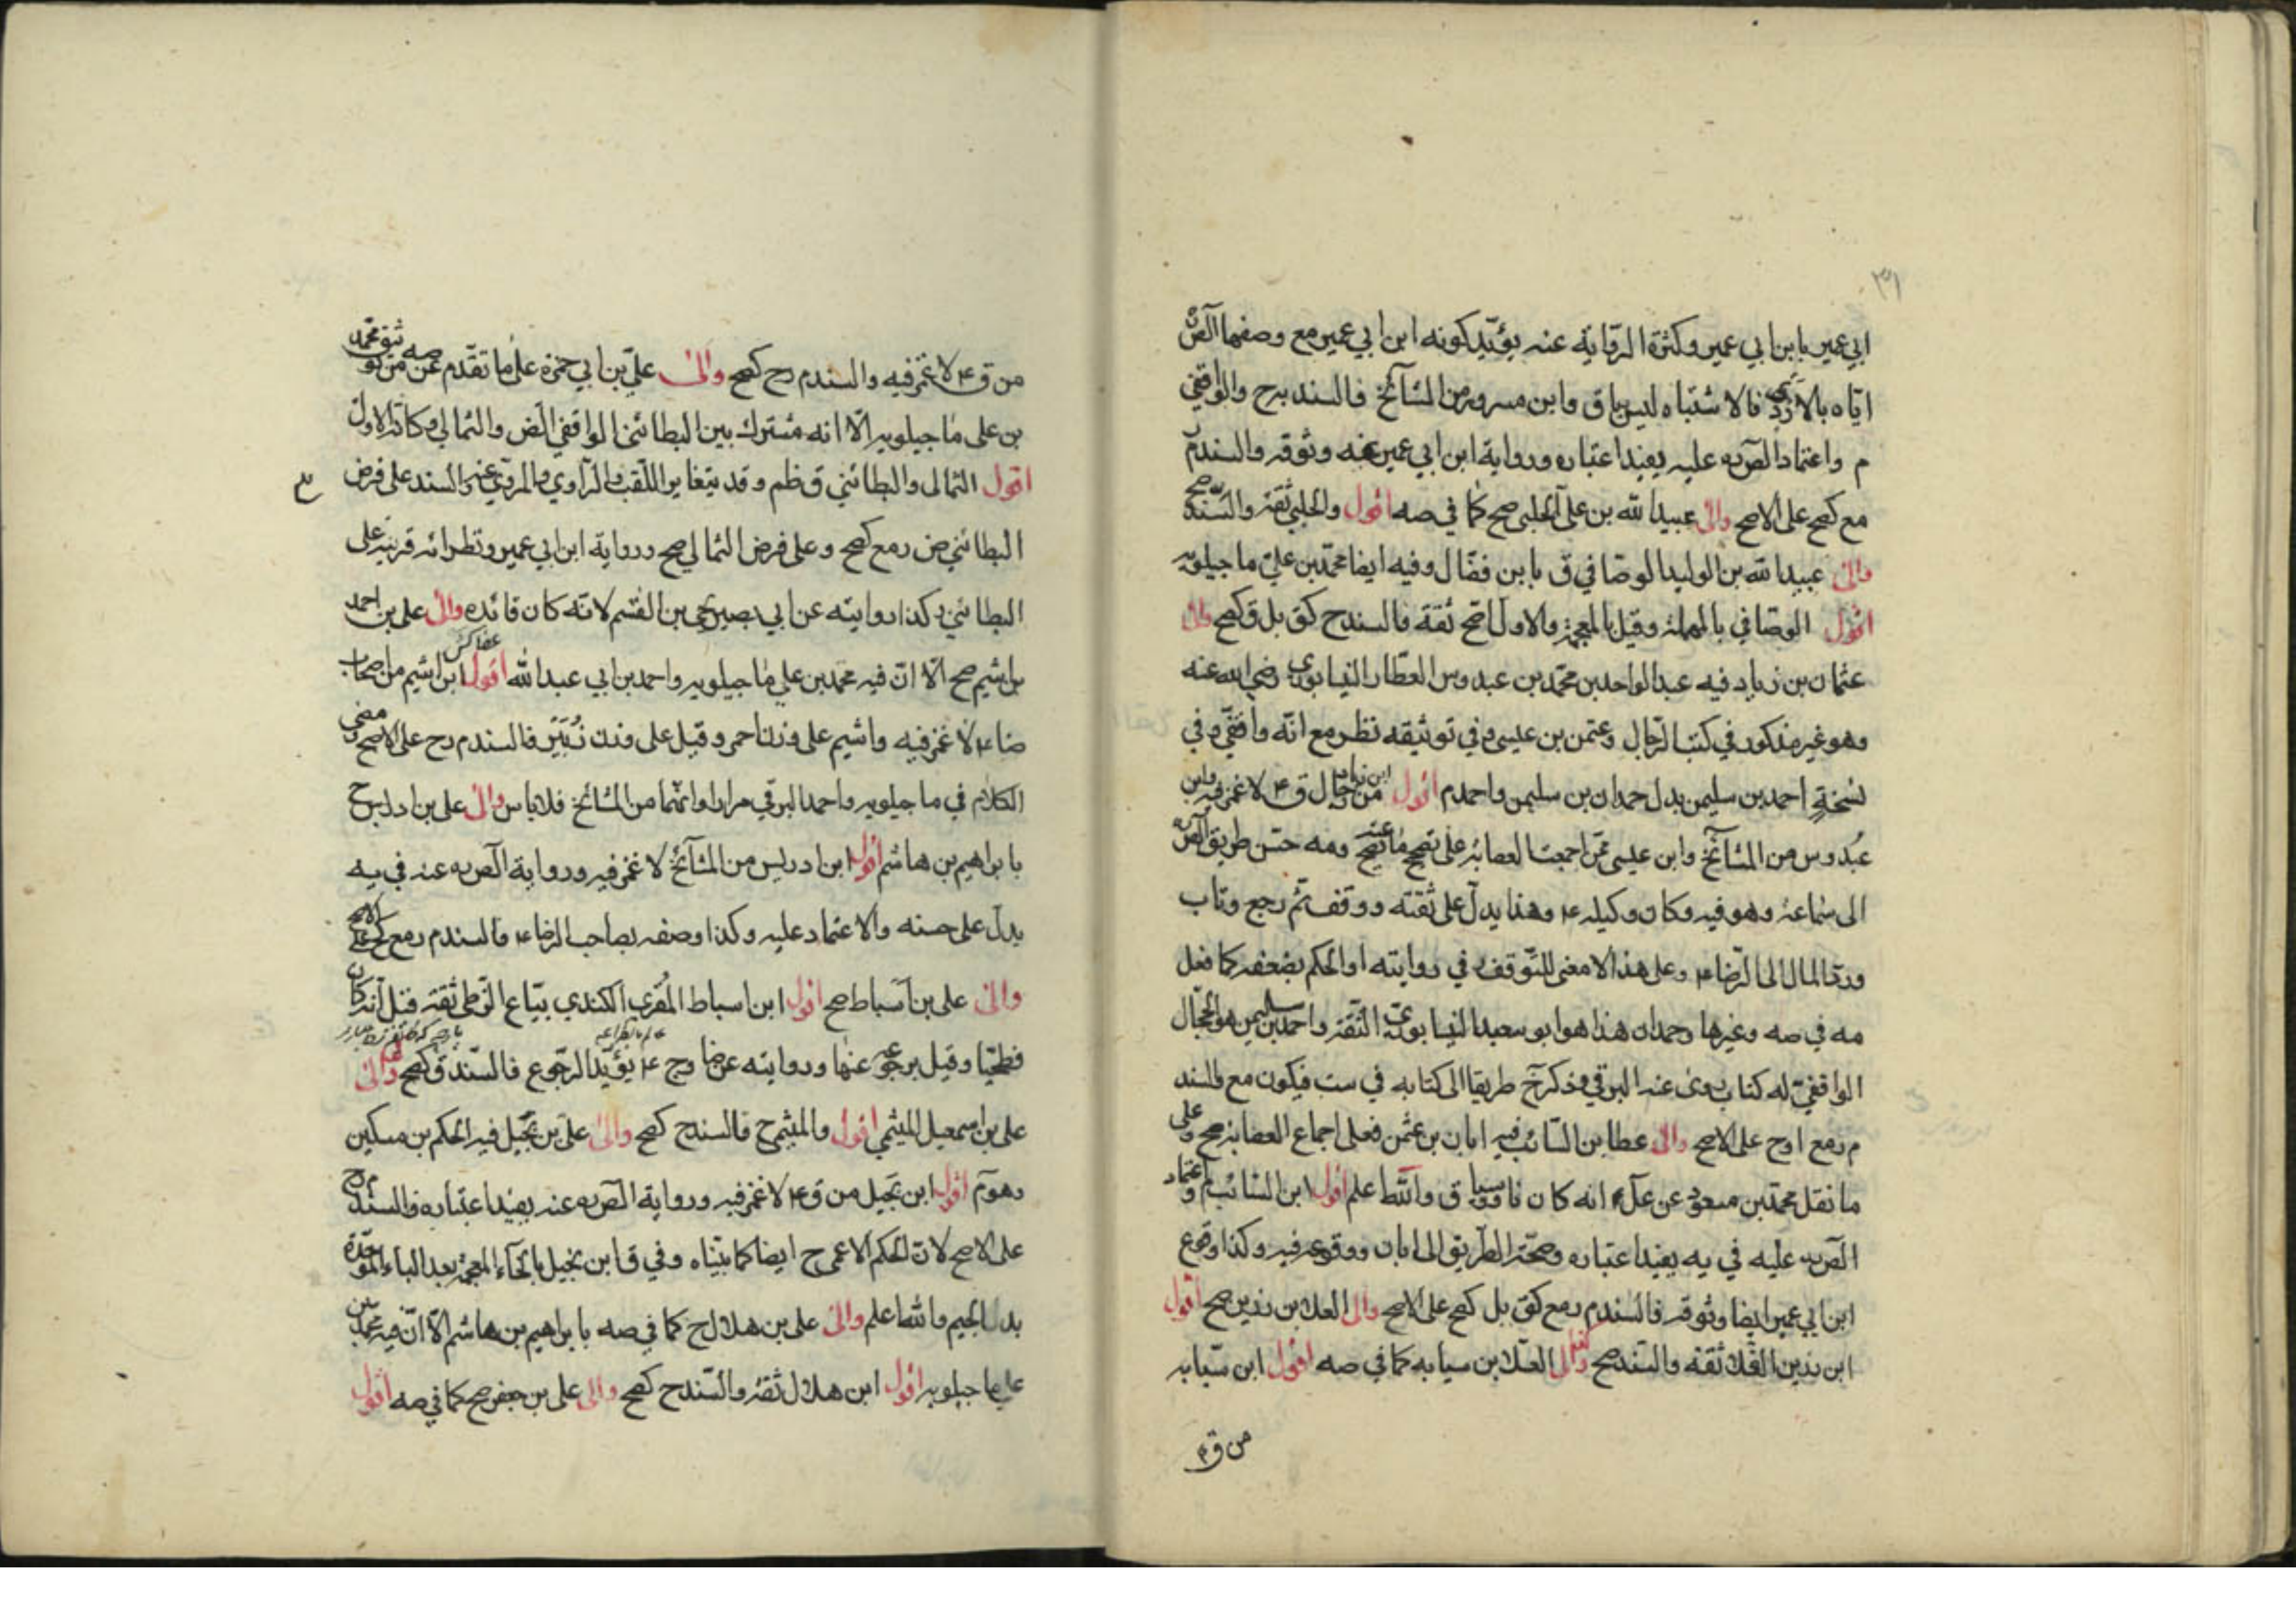 ٣١
ابي عمير بابن ابي عمير وكثرة الرواية عنه يؤيد كونه ابن ابي عمير مع وصفهما الص
اياه بالازدي فالاشتباه ليس باق وابن مسرور من المشآئخ فالسند برح والواقفي
م واعتماد الص ره عليه يفيد اعتباره ورواية ابن ابي عمير عنه وثوقه والسند م
مع كصح على الاصح والى عبيد الله بن علي الحلبي صح كما في صه اقول والحلبي ثقة والسند صح
والى عبيد الله بن الوليد الوصافي ق بابن فضال وفيه ايضا محمد بن علي ماجيلويه
اقول الوصافي بالمهملة وقيل بالمعجمة والاول اصح ثقة فالسند ح كق بل ق كصح والى
عثمان بن زياد فيه عبد الواحد بن محمد بن عبدوس العطار النيسابوري رضي الله عنه
وهو غير مذكور في كتب الرجال وعثمن بن عيسى وفي توثيقه نظر مع انه واقفي وفي
نسخة احمد بن سليمن بدل حمدان بن سليمن واحمد م اقول ابن زياد من رجال ق ع لا غمز فيه وابن
عبدوس من المشآئخ وابن عيسى ممن اجمعت العصابة على تصحيح ما يصح عنه ومه حسن طريق الص ره
الى سماعة وهو فيه وكان وكيله ع وهذا يدل على ثقته ووقف ثم رجع وتاب
ورد المال الى الرضا ع وعلى هذا لا معنى للتوقف في روايته او الحكم بضعفه كما فعل
مه في صه وغيرها وحمدان هذا هو ابو سعيد النيسابوري الثقة واحمد بن سليمن هو الحجال
الواقفي له كتاب روى عنه البرقي وذكر خ طريقا الى كتابه في ست فيكون مع فالسند
م رمع اوح على الاصح والى عطا بن السائب فيه ابان بن عثمن فعلى اجماع العصابة صح وعلى
ما نقل محمد بن مسعود عن علي انه كان ناووسيا ق والله اعلم اقول ابن السائب م واعتماد
الص ره عليه في يه يفيد اعتباره وصحة الطريق الى ابان ووقوعه فيه وكذا وقوع
ابن ابي عمير ايضا وثوقه فالسند م رمع كق بل كصح على الاصح والى العلا بن رزين صح اقول
ابن رزين القلا ثقة والسند صح والى العلا بن سيابه كما في صه اقول ابن سيابه
من ق ع
من ق ع لا غمز فيه والسند م رح كصح والى علي بن ابي حمزه على ما تقدم عن صه من توثيق محمد
بن علي ماجيلويه الا انه مشترك بين البطائني الواقفي الض والثمالي وكانه الاول
اقول الثمالي والبطائني ق ظم وقد يتغاير اللقب والراوي والمروي عنه والسند على فرض
البطائني ض رمع كصح وعلى فرض الثمالي صح ورواية ابن ابي عمير ونظرائه قرينة على
البطائني وكذا روايته عن ابي بصير يحيى بن القسم لانه كان قائده والى علي بن احمد
بن اشيم صح الا ان فيه محمد بن علي ماجيلويه واحمد بن ابي عبد الله اقول ابن اشيم من اصحاب
ضا ع لا غمز فيه واشيم على وزن احمر وقيل على وزن زبير فالسند م رح على الاصح ومضى
الكلام في ماجيلويه واحمد البرقي مرارا وانهما من المشائخ فلا باس والى علي بن ادريس ح
بابراهيم بن هاشم اقول ابن ادريس من المشآئخ لا غمز فيه ورواية الص ره عنه في يه
يدل على حسنه والاعتماد عليه وكذا وصفه بصاحب الرضا ع فالسند م رمع كصح على الاصح
والى علي بن اسباط صح اقول ابن اسباط المقري الكندي بياع الزطي ثقة قيل انه كان
فطحيا وقيل برجوعه عنها وروايته عن ضا وج ع يؤيد الرجوع فالسند ق كصح والى
علي بن اسمعيل الميثمي اقول والميثمي ح فالسند ح كصح والى علي بن بجيل فيه الحكم بن مسكين
وهو م اقول ابن بجيل من ق ع لا غمز فيه ورواية الص ره عنه يفيد اعتباره فالسند م رح
على الاصح لان الحكم الاعمى ح ايضا كما بيناه وفي ق ابن بخيل بالخاء المعجمة بعد الباء الموحدة
بدل الجيم والله اعلم والى علي بن هلال ح كما في صه بابراهيم بن هاشم الا ان فيه محمد بن
علي ماجيلويه اقول ابن هلال ثقة والسند ح كصح والى علي بن جعفر صح كما في صه اقول